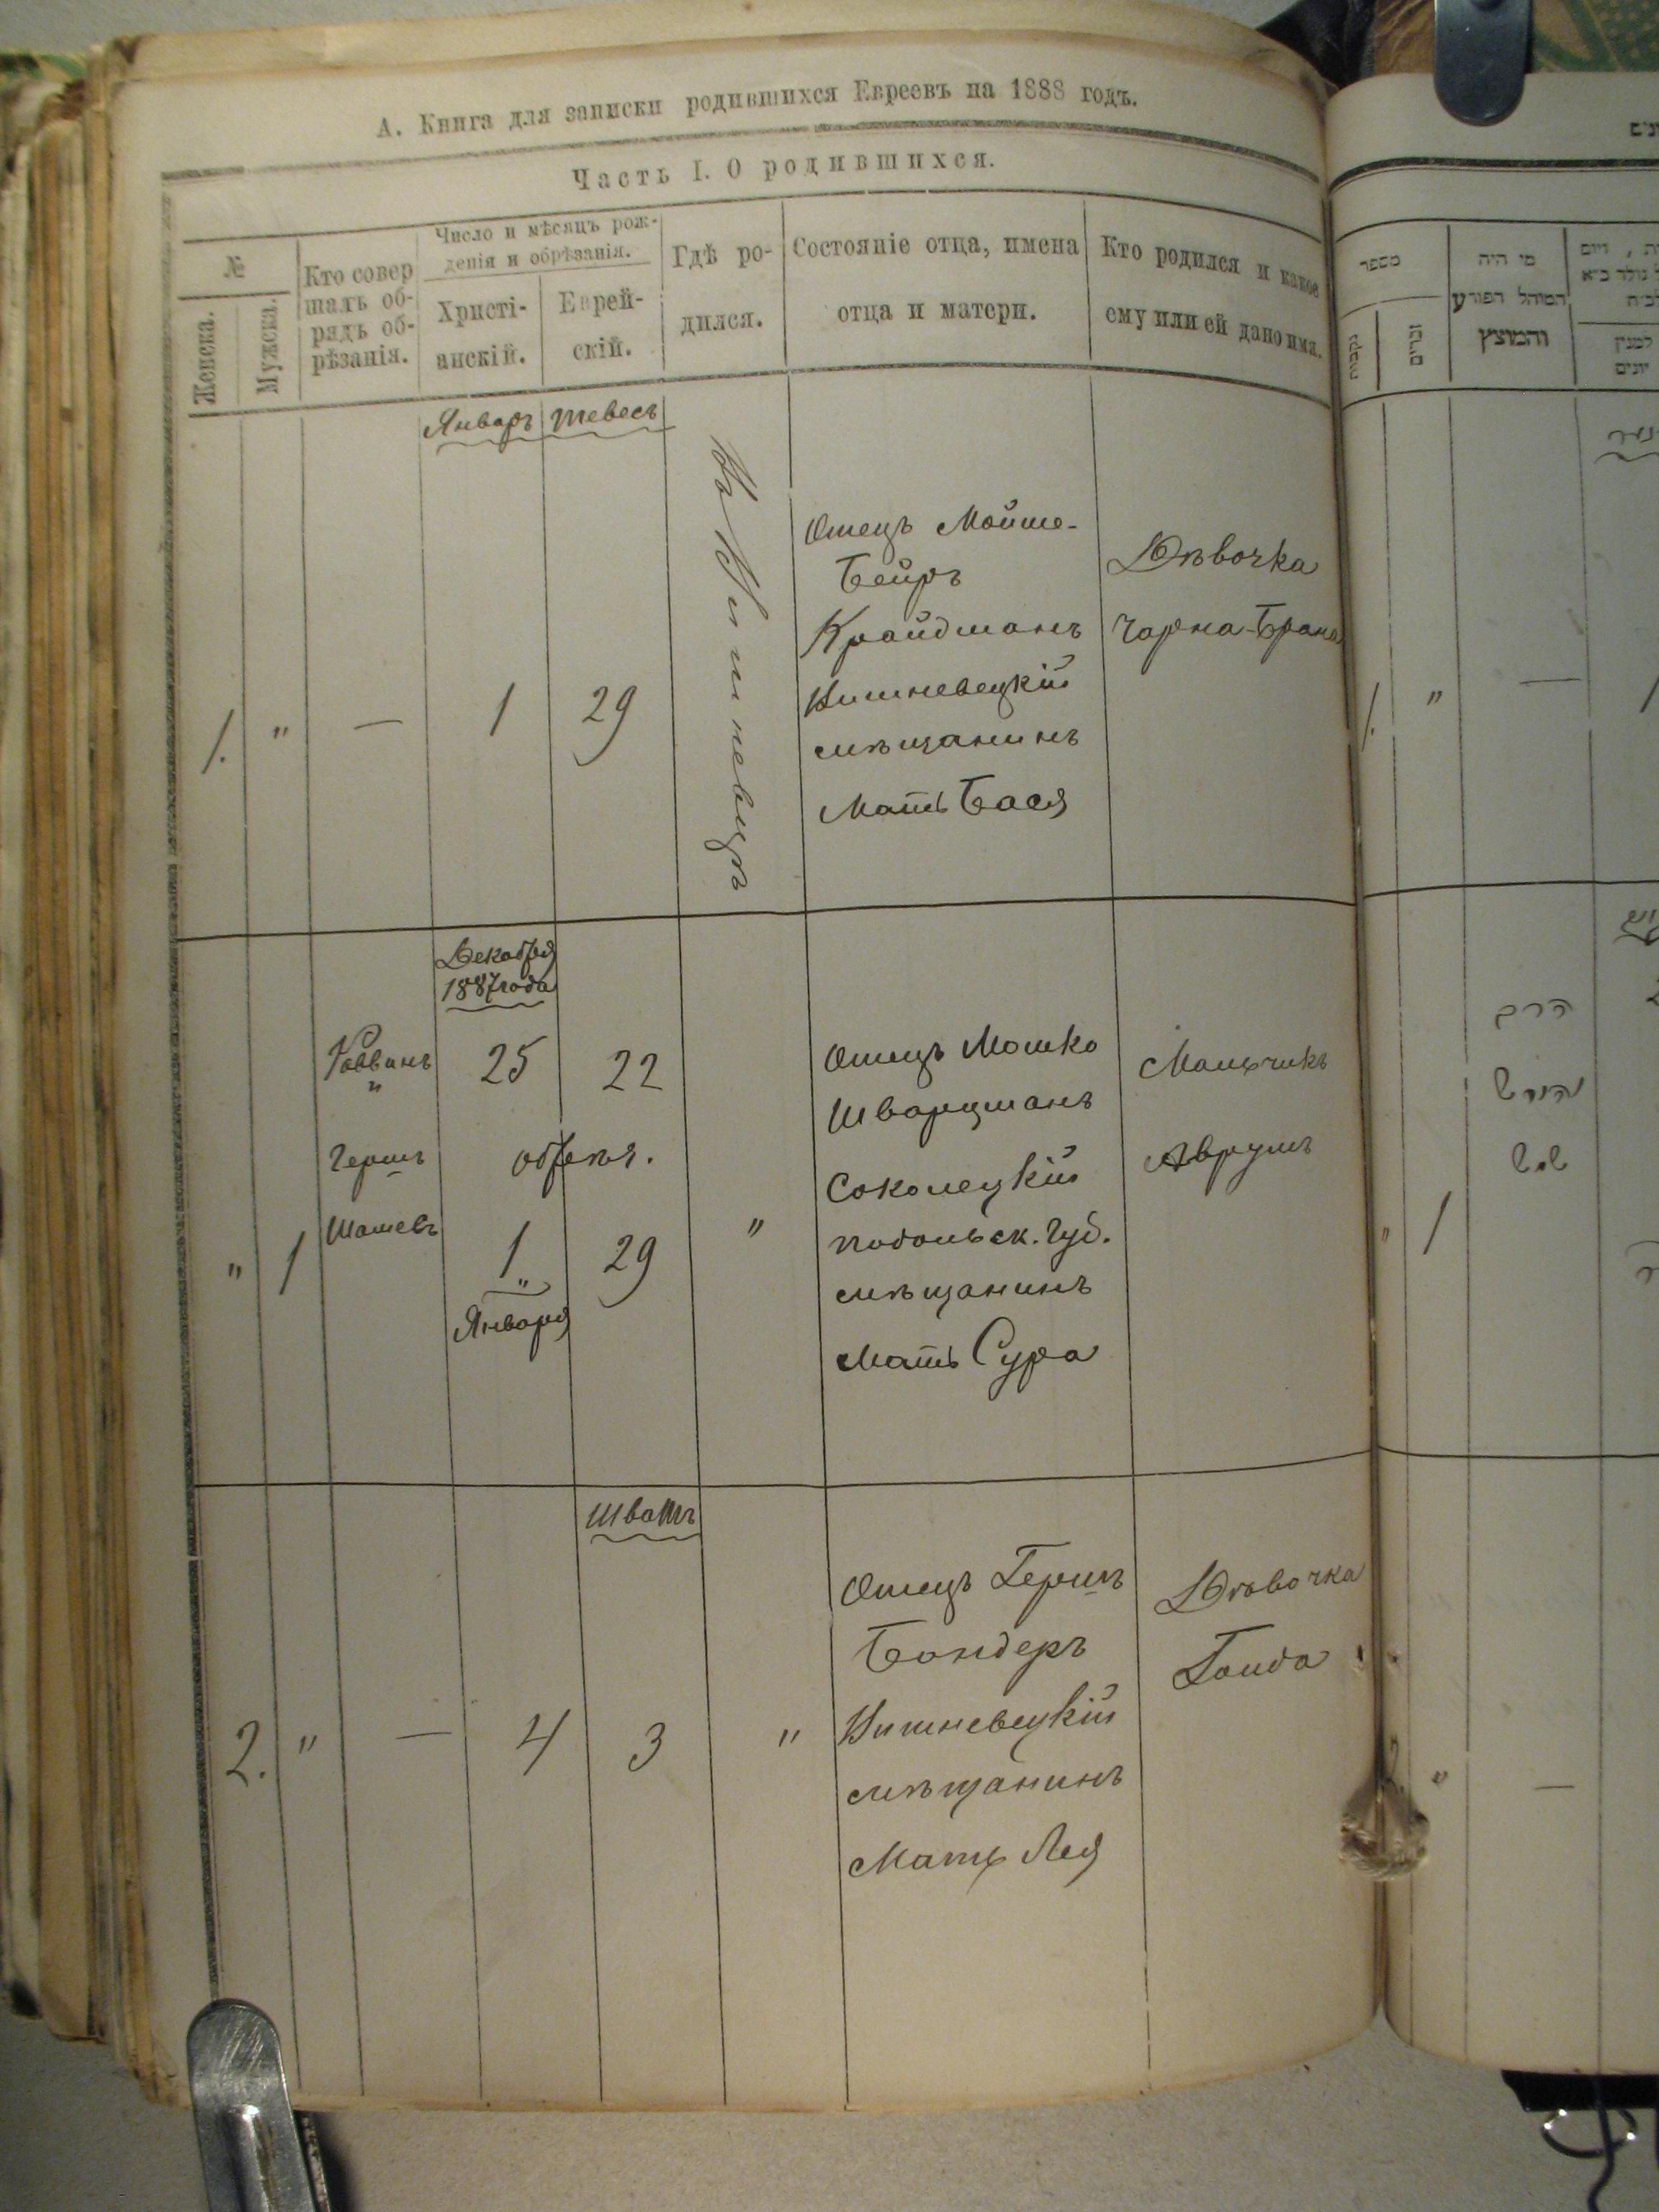 А. Книга для записки родившихся Евреевъ на 1888 годъ.
Часть I. О родившихся.
№
Женска.
Мужска.
Кто совер
шалъ об-
рядъ об-
рѣзанія.
Число и мѣсяцъ рож-
денія и обрѣзанія.
Христі-
анскій.
Еврей-
скій.
Гдѣ ро-
дился.
Состояніе отца, имена
отца и матери.
Кто родился и какое
ему или ей дано имя.
Январь
Тевесъ
1.
"
—
1
29
Въ Вишневцѣ
Отецъ Мойше-
Бейръ
Крайдманъ
Вишневецкій
мѣщанинъ
Мать Бася
Дѣвочка
Чарна-Брана
Декабря
1887 года
"
1
Раввинъ
"
Гершъ
25
22
обрѣзан.
1
"
Января
29
"
Отецъ Мошко
Шварцманъ
Соколецкій
подольск. губ.
мѣщанинъ
Мать Сура
Мальчикъ
Аврумъ
Шватъ
2.
"
—
4
3
"
Отецъ Гершъ
Бондеръ
Вишневецкій
мѣщанинъ
Мать Лея
Дѣвочка
מספר
נקבות
זכרים
מי היה
המוהל הפורע
והמוצץ
למנין
יונים
1.
"
—
הרב
"
1
"
—